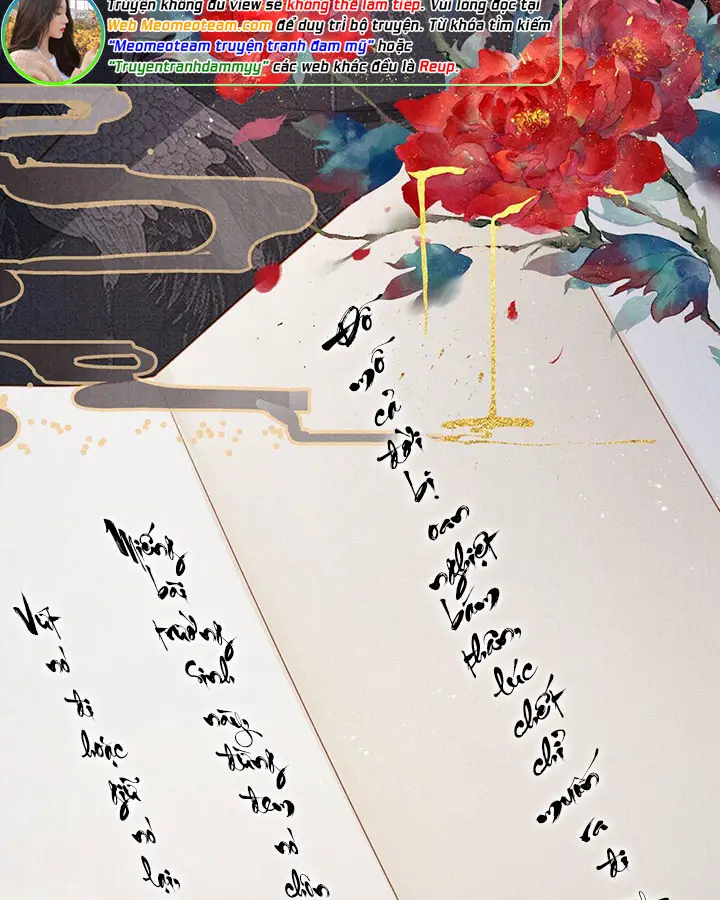 Truyện không đủ view sẽ không thể làm tiếp. Vui lòng đọc tại
Web Meomeoteam.com để duy trì bộ truyện. Từ khóa tìm kiếm
“Meomeoteam truyện tranh đam mỹ” hoặc
“Truyentranhdammyy” các web khác đều là Reup.
Đồ mố cả đời bị oan nghiệt bám thân, lúc chết chỉ muốn ra đi
Miếng bài trường sinh này, đừng đem nó chôn
Vứt nó đi hoặc giữ nó lại,